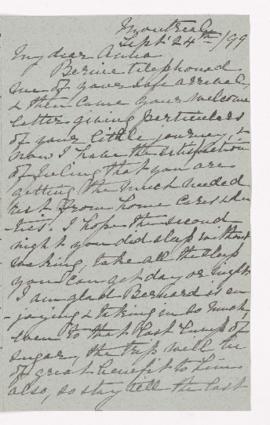 Montreal
Sept 24th/99
My dear Anna
Bernie telephoned
me of your safe arrival,
& then came your welcome
letter giving particulars
of your little journey, &
now I have the satisfaction
of feeling that you are
getting the much needed
rest from home cares &
I hope the second
night you did sleep without
waking, take all the sleep
you can get day or night
I am glad Bernard is en-
joying & taking in so much,
even to that last lump of
sugar, the trip will be
of great benefit to him
also, so stay till the last